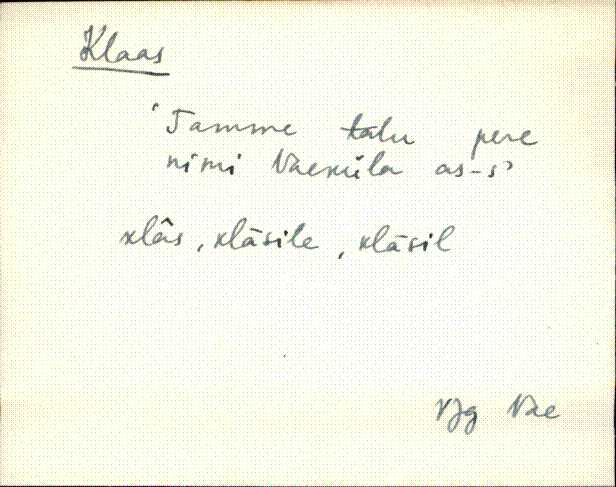 Klaas
'Tamme talu pere
nimi Vaeküla as-s'
klâs, klāsile, klāsil
VJg Vae